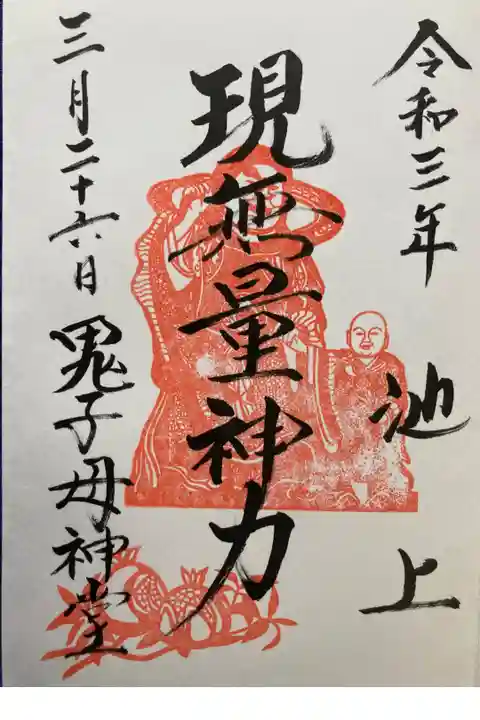 令和三年 池上
現無量神力
三月二十六日 鬼子母神堂